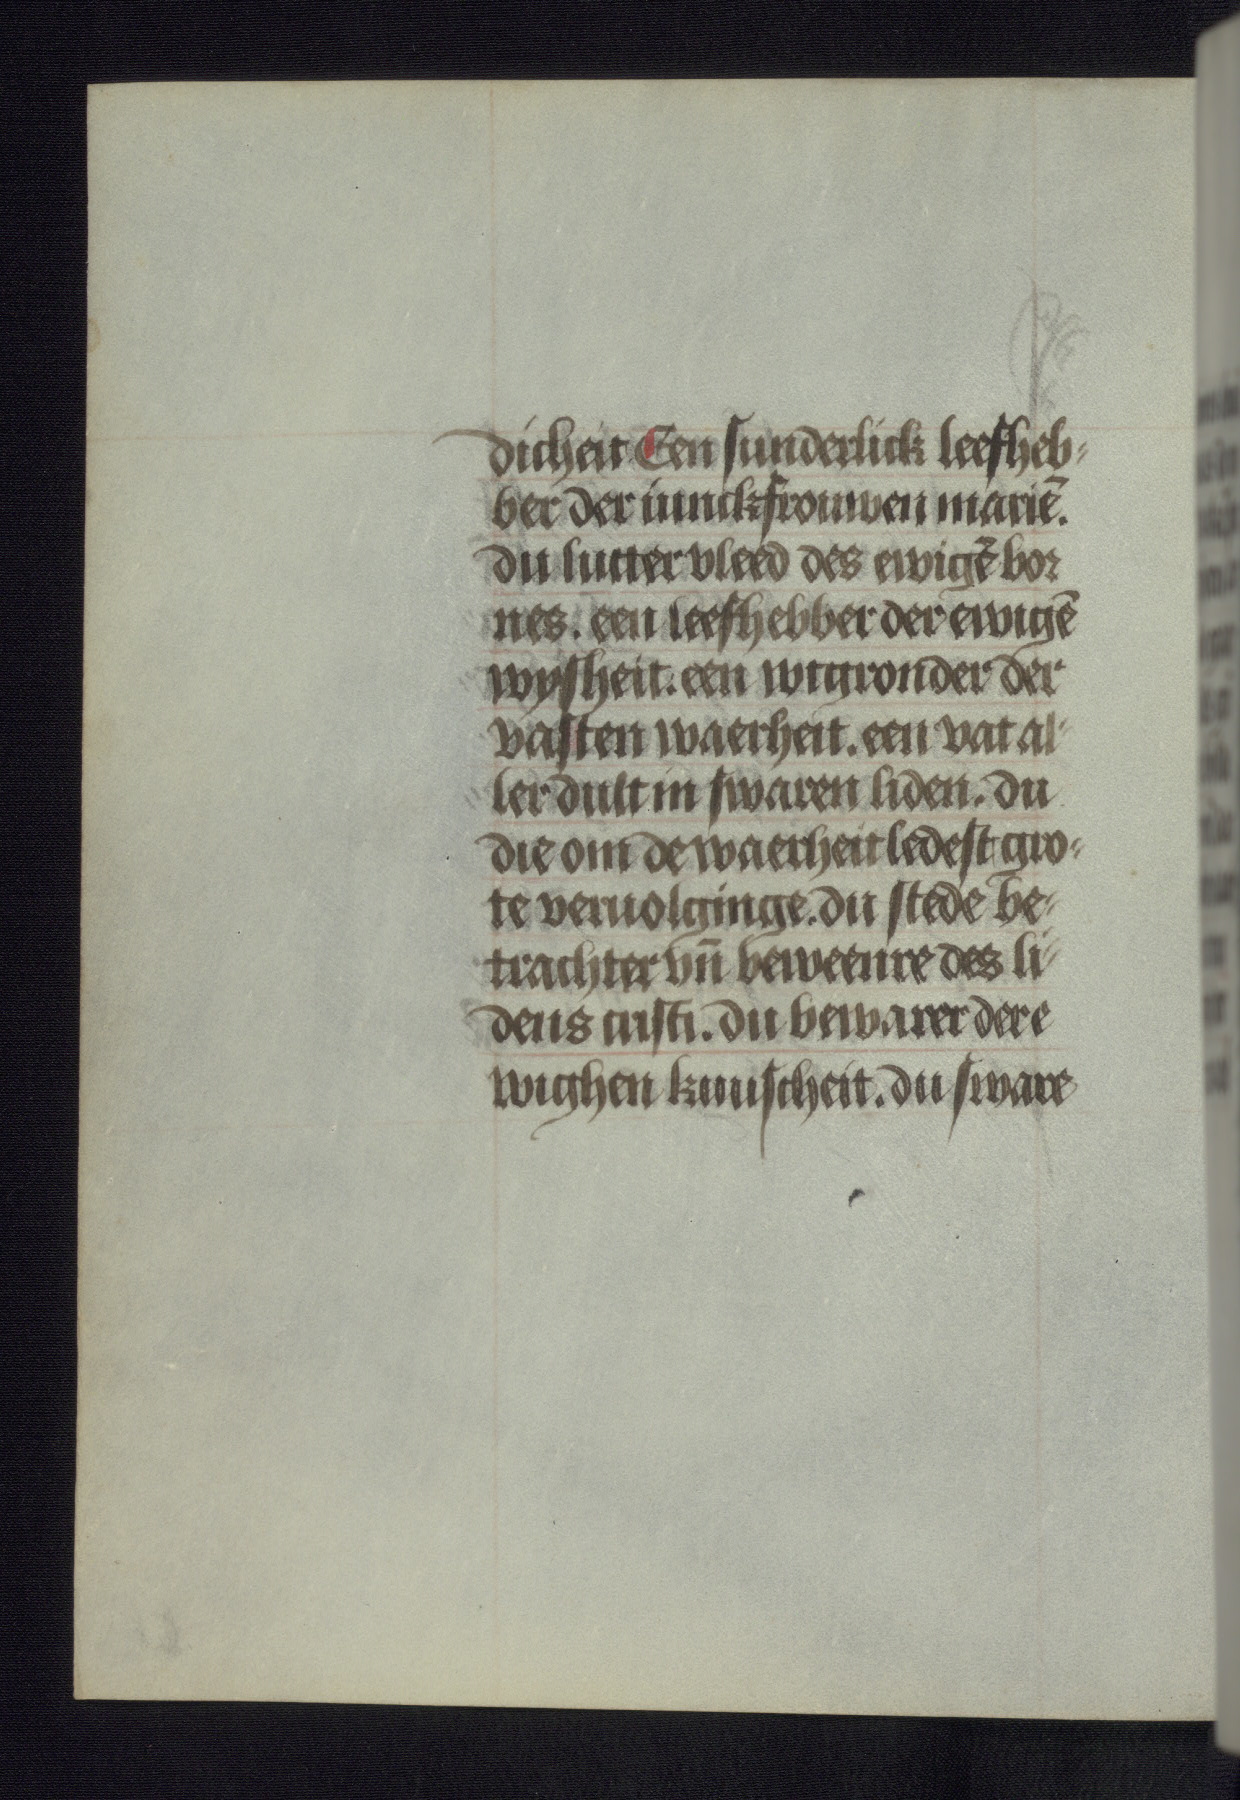 dicheit Een sunderlick leefheb-
ber der iunckfrouwen mariē.
du lutter vleed des ewigē bor
nes. een leefhebber der ewigē
wysheit. een wtgronder der
vasten waerheit. een vat al-
ler dult in swaren liden. du
die om de waerheit ledest gro-
te veruolginge. du stede be-
trachter vn̄ beweenre des li-
dens cristi. du bewarer der e
wighen kuuscheit. du sware